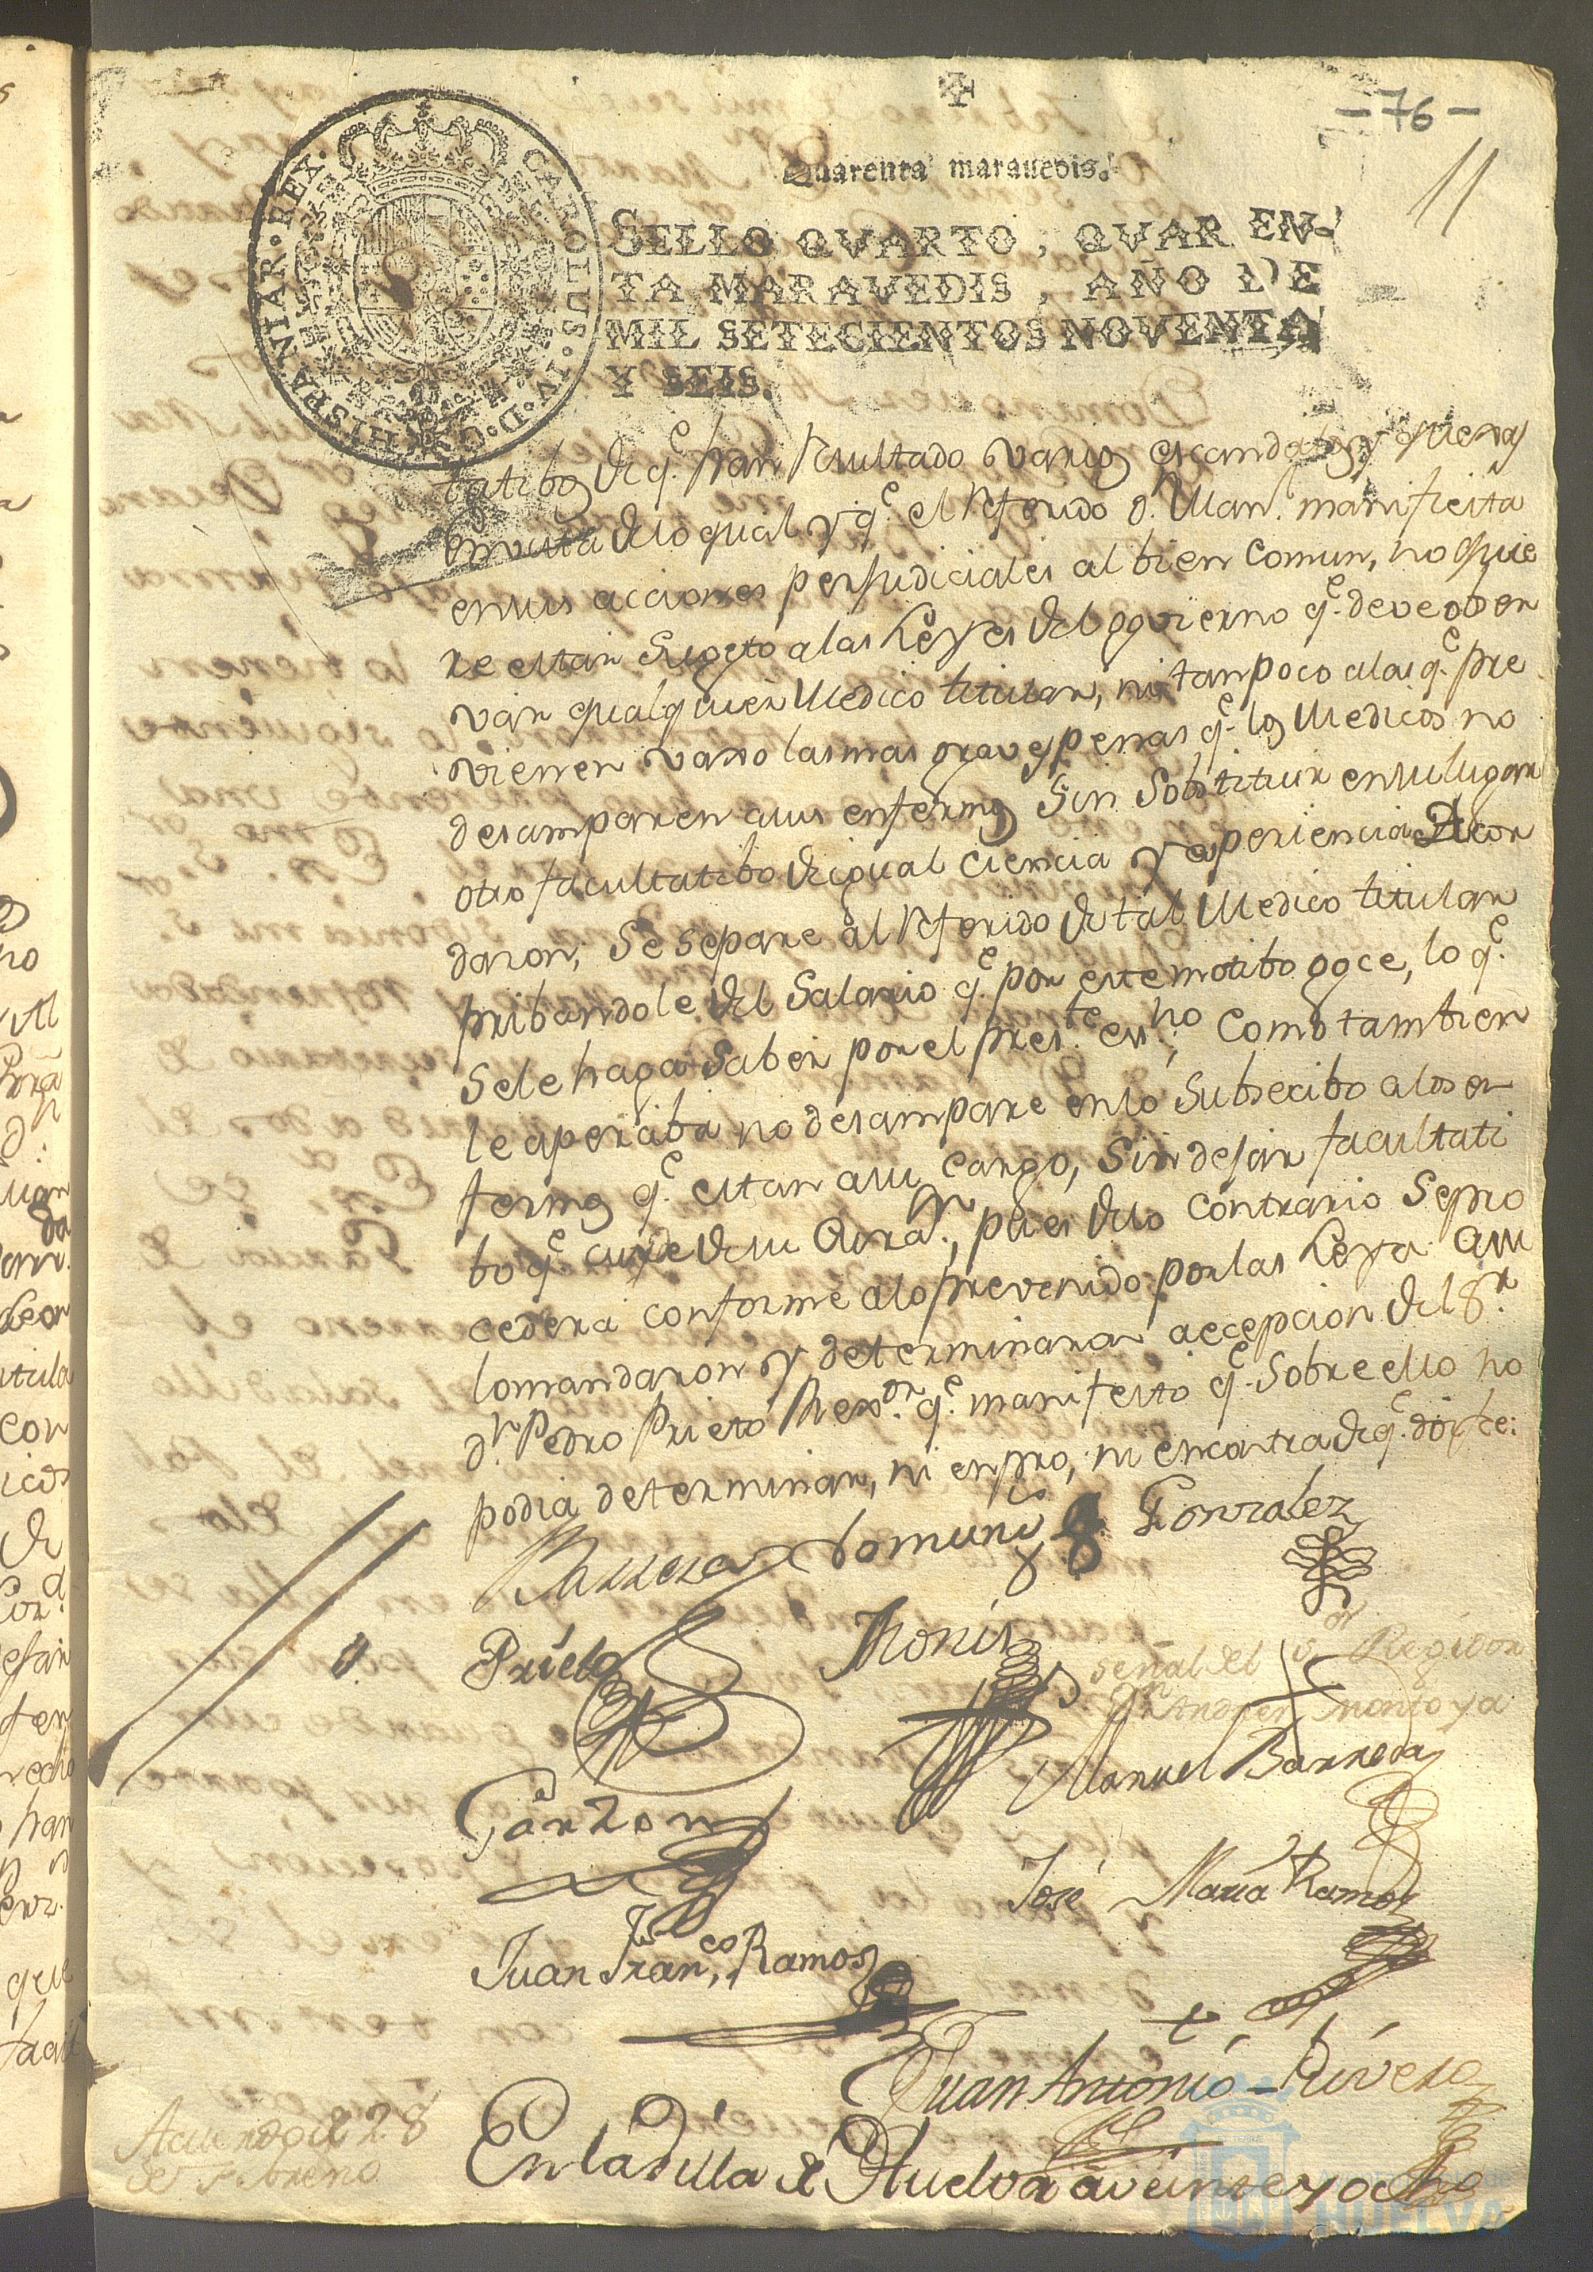 - 76 -
11
Quarenta maravedis.
SELLO QVARTO, QVAREN-
TA MARAVEDIS, AÑO DE
MIL SETECIENTOS NOVENTA
Y SEIS.
CAROLUS·IV·D·G·HISPANIAR·REX·
tatibos de q.e han resultado varios escandalos y quexas
en vista de lo qual y q.e el referido d.n Man.l manifiesta
en sus acciones perjudiciales al bien comun, no quie
re estar sugeto a las Leyes del govierno q.e deve obser
var qualquier Medico titular, ni tampoco a las q.e pre
vienen vaxo las mas graves penas q.e los Medicos no
desamparen a sus enfermos sin sobstituir en su lugar
otro facultatibo de igual ciencia y esperiencia Acor
daron, Se separe al referido de tal Medico titular
pribandole del Salario q.e por este motibo goce, lo q.e
se le haga saber por el pres.te ess.no, como tambien
le aperciba no desampare en lo subsecibo a los en
fermos q.e estan a su cargo, sin dejar facultati
bo q.e cuide de su Cura.on, pues de lo contrario se pro
cedera conforme a lo prevenido por las Leyes. asi
lo mandaron y determinaron a ecepcion del S.r
d.n Pedro Prieto Rex.or q.e manifesto q.e sobre ello no
podia determinar, ni en pro, ni en contra de q.e doy fee:
Doming.s Gonzalez
Prieto
señal del s.or Regidor
D.n Andres montoya
Manuel Barreda
Garzon
José Maria Ramos
Juan Fran.co Ramos
Juan Antonio Rivera
Acuerdo de 28
de Febrero
En la Villa de Huelva a veinte y ocho
HUELVA